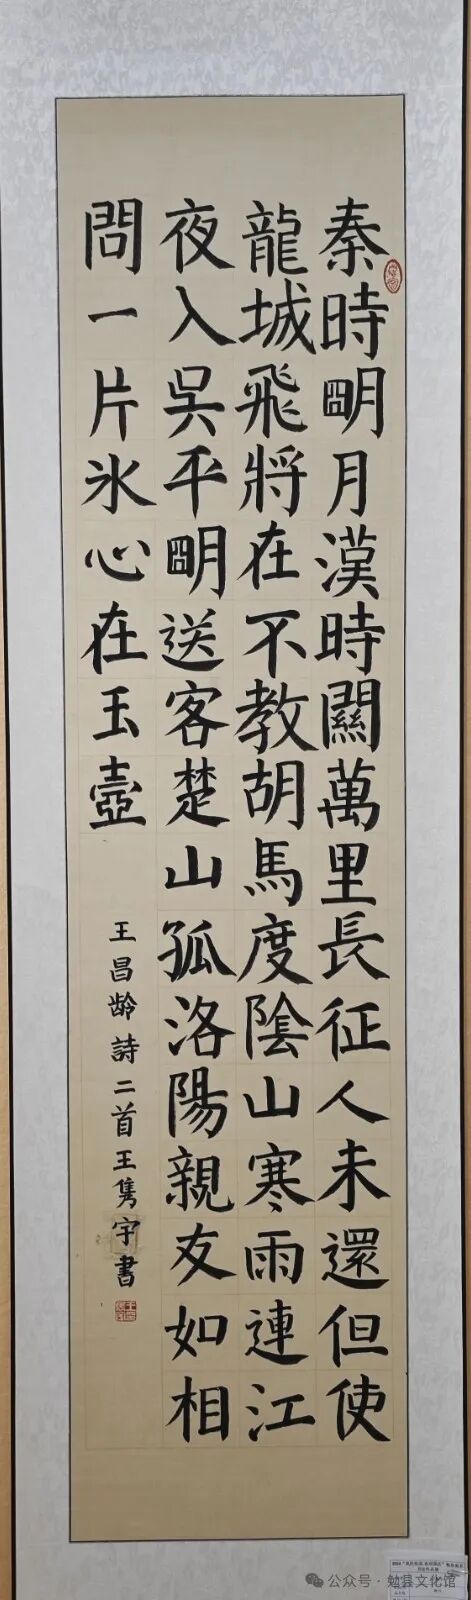 秦時明月漢時關萬里長征人未還但使
龍城飛將在不教胡馬度陰山寒雨連江
夜入吳平明送客楚山孤洛陽親友如相
問一片氷心在玉壺
王昌龄詩二首王隽宇書
公众号·勉县文化馆